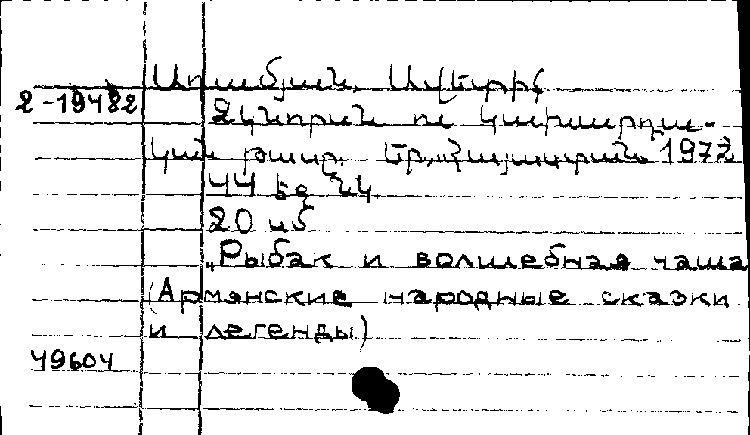 Առամյան, Ավետիս
2-19482
Ձկնորսն ու կախարդա-
կան թասը. Եր., Հայաստան 1972
44 էջ նկ.
20 սմ
„Рыбак и волшебная чаша
(Армянские народные сказки
и легенды)
49604